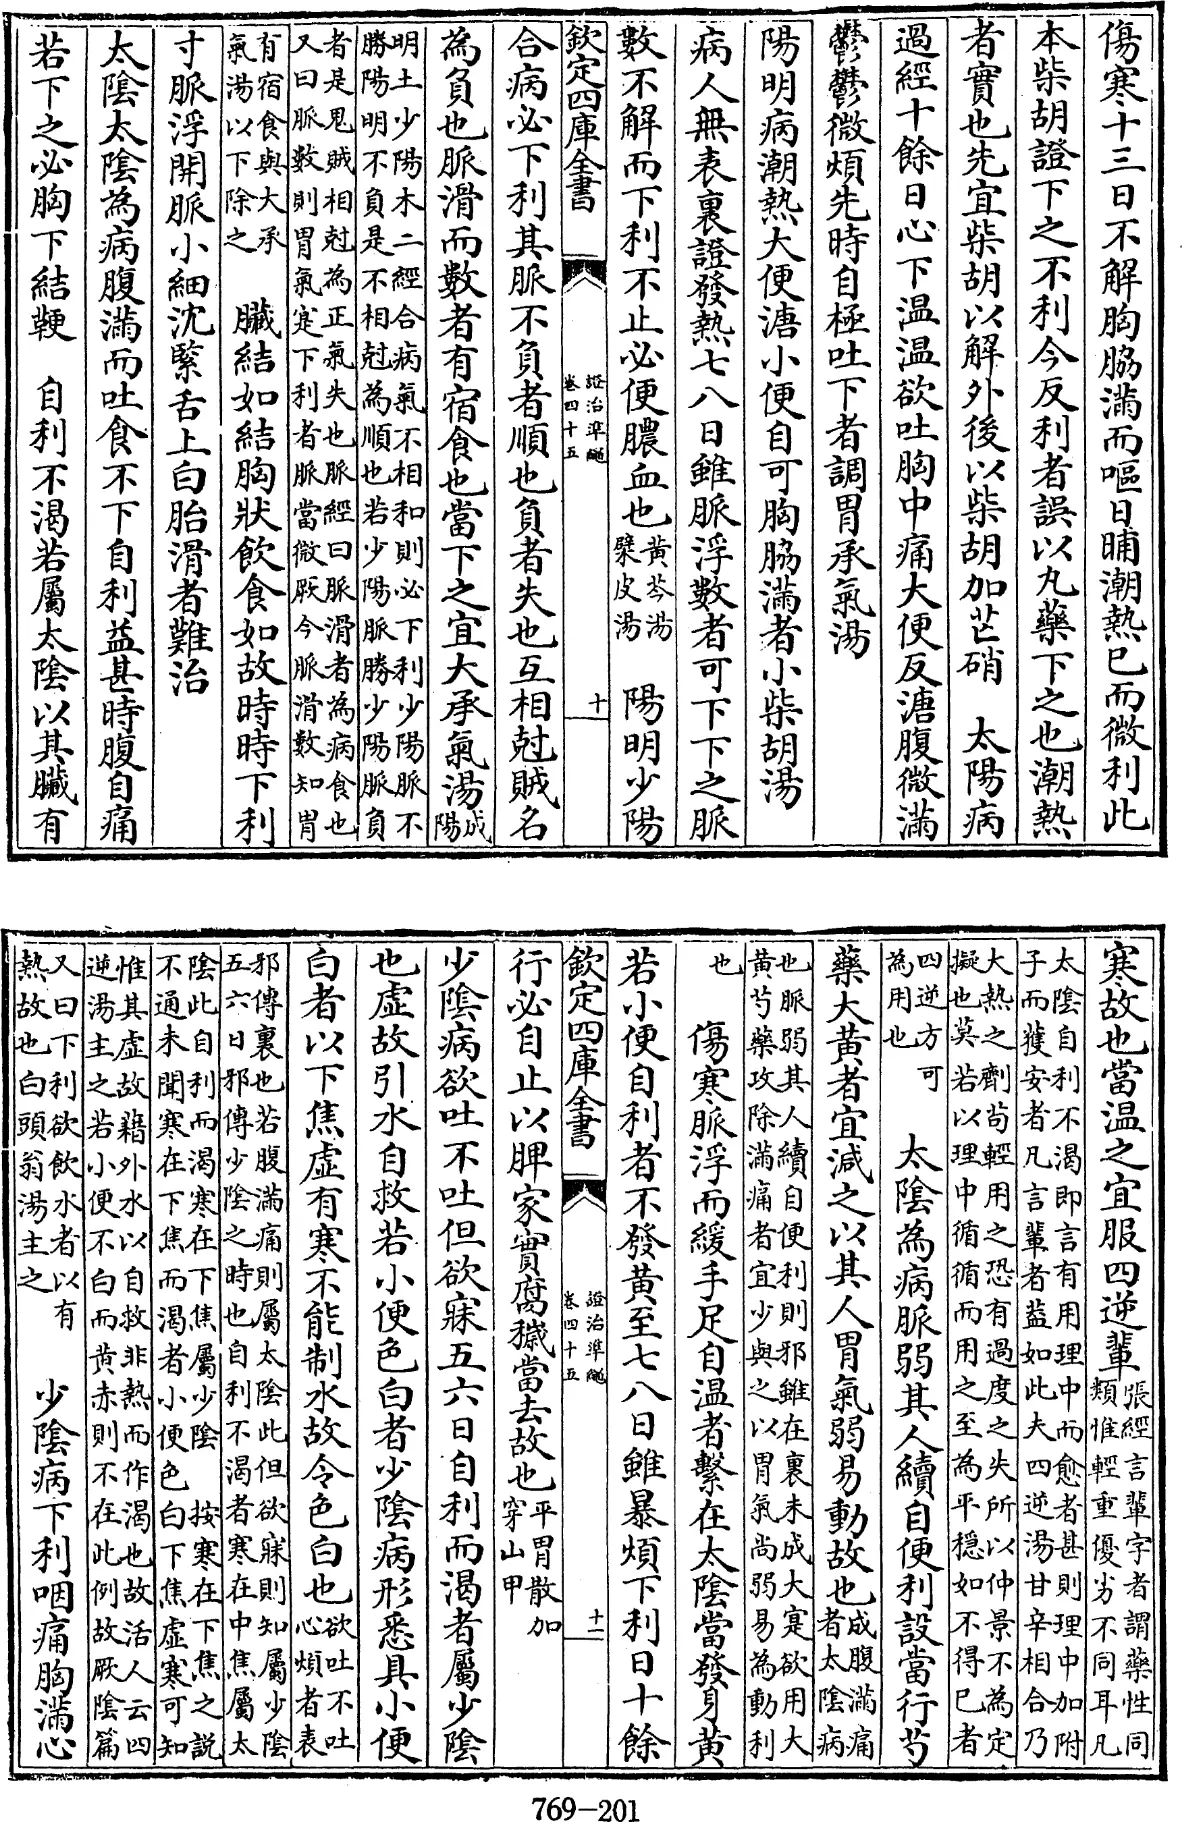 傷寒十三日不解胸脇滿而嘔日晡潮熱已而微利此
本柴胡證下之不利今反利者誤以丸藥下之也潮熱
者實也先宜柴胡以解外後以柴胡加芒硝　太陽病
過經十餘日心下温温欲吐胸中痛大便反溏腹微滿
鬱鬱微煩先時自極吐下者調胃承氣湯
陽明病潮熱大便溏小便自可胸脇滿者小柴胡湯
病人無表裏證發熱七八日雖脈浮數者可下下之脈
數不解而下利不止必便膿血也黄芩湯
檗皮湯　陽明少陽
欽定四庫全書
證治準繩
卷四十五
十
合病必下利其脈不負者順也負者失也互相尅賊名
為負也脈滑而數者有宿食也當下之宜大承氣湯成
陽
明土少陽木二經合病氣不相和則必下利少陽脈不
勝陽明不負是不相尅為順也若少陽脈勝少陽脈負
者是鬼賊相尅為正氣失也脈經曰脈滑者為病食也
又曰脈數則胃氣寔下利者脈當微厥今脈滑數知胃
有宿食與大承
氣湯以下除之　臟結如結胸狀飲食如故時時下利
寸脈浮關脈小細沈緊舌上白胎滑者難治
太陰太陰為病腹滿而吐食不下自利益甚時腹自痛
若下之必胸下結鞕　自利不渴若屬太陰以其臟有
寒故也當温之宜服四逆輩張經言輩字者謂藥性同
類惟輕重優劣不同耳凡
太陰自利不渴即言有用理中而愈者甚則理中加附
子而獲安者凡言輩者葢如此夫四逆湯甘辛相合乃
大熱之劑苟輕用之恐有過度之失所以仲景不為定
擬也莫若以理中循循而用之至為平穩如不得已者
四逆方可
為用也　太陰為病脈弱其人續自便利設當行芍
藥大黄者宜減之以其人胃氣弱易動故也成腹滿痛
者太陰病
也脈弱其人續自便利則邪雖在裏未成大寔欲用大
黄芍藥攻除滿痛者宜少與之以胃氣尚弱易為動利
也　傷寒脈浮而緩手足自温者繫在太陰當發身黄
若小便自利者不發黄至七八日雖暴煩下利日十餘
欽定四庫全書
證治準繩
卷四十五
十一
行必自止以脾家實腐穢當去故也平胃散加
穿山甲
少陰病欲吐不吐但欲寐五六日自利而渴者屬少陰
也虚故引水自救若小便色白者少陰病形悉具小便
白者以下焦虚有寒不能制水故令色白也欲吐不吐
心煩者表
邪傳裏也若腹滿痛則屬太陰此但欲寐則知屬少陰
五六日邪傳少陰之時也自利不渴者寒在中焦屬太
陰此自利而渴寒在下焦屬少陰　按寒在下焦之說
不通未聞寒在下焦而渴者小便色白下焦虚寒可知
惟其虚故藉外水以自救非熱而作渴也故活人云四
逆湯主之若小便不白而黄赤則不在此例故厥陰篇
又曰下利欲飲水者以有
熱故也白頭翁湯主之　少陰病下利咽痛胸滿心
769-201